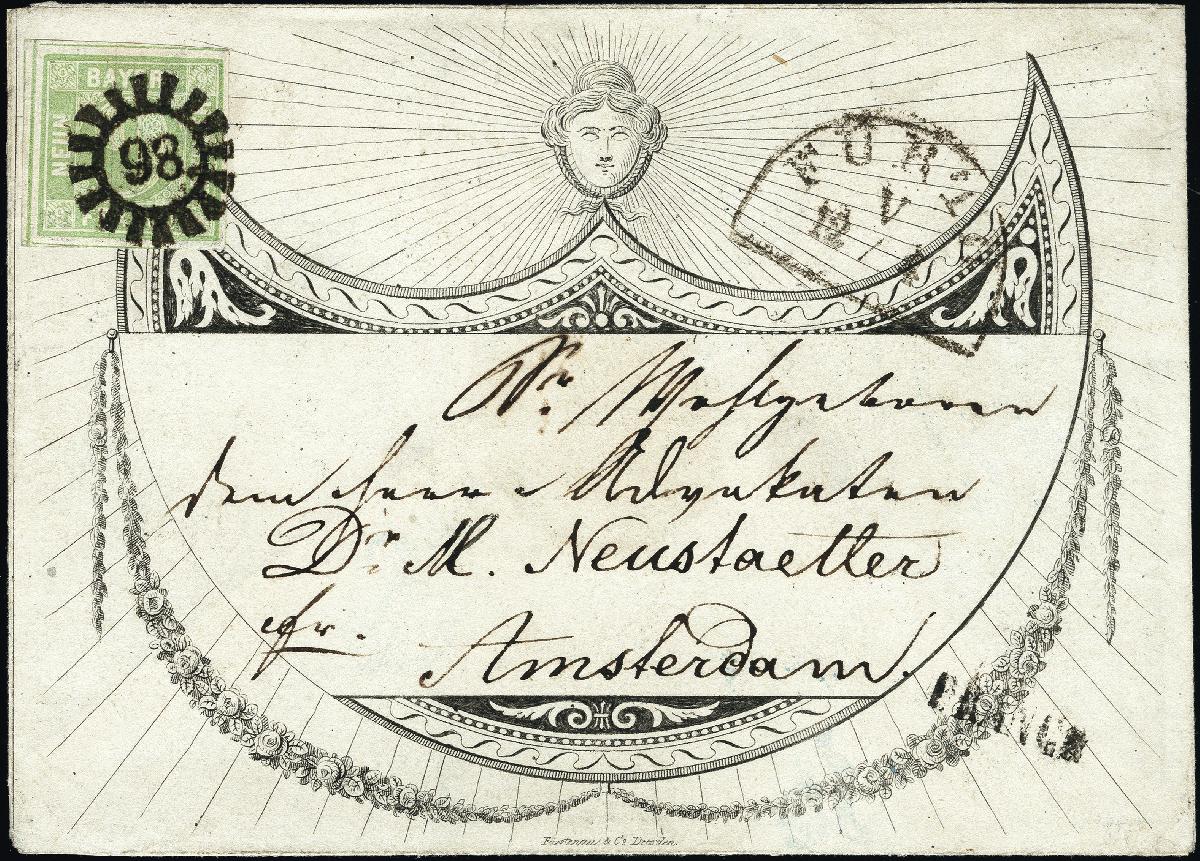 BAYERN
NEUN
98
FÜRTH
12 V
Sr. Wohlgeboren
dem Herrn Advokaten
Dr. M. Neustaetter
fr. Amsterdam.
FRANCO
& Co Dresden.